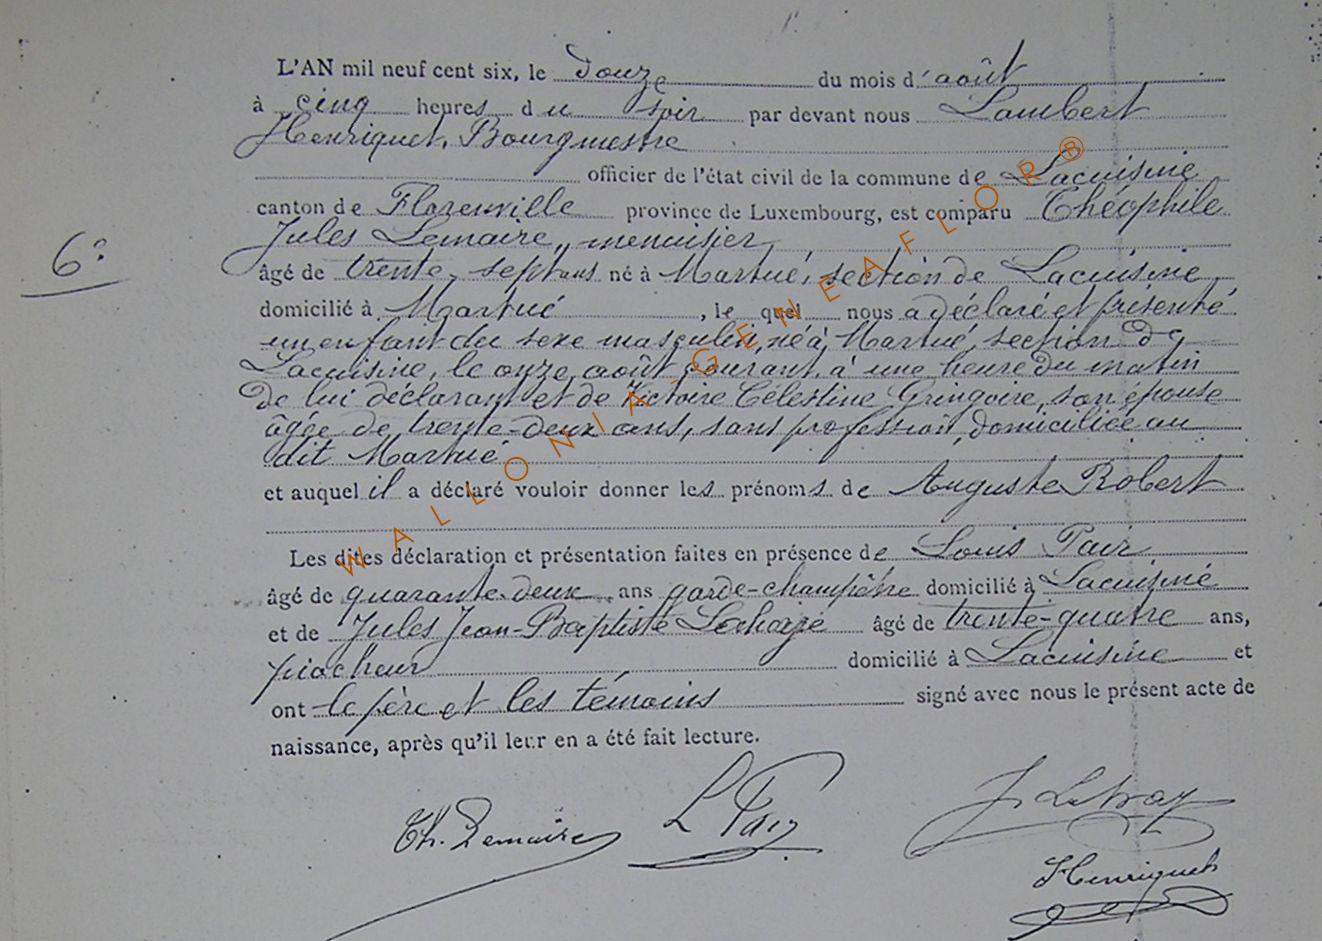 L'AN mil neuf cent six, le douze du mois d'août
à cinq heures du soir par devant nous Lambert
Henriquet, Bourgmestre
officier de l'état civil de la commune de Lacuisine
canton de Florenville province de Luxembourg, est comparu Théophile
Jules Lemaire, menuisier
6°
âgé de trente-sept ans né à Martué, section de Lacuisine
domicilié à Martué, lequel nous a déclaré et présenté
un enfant du sexe masculin, né à Martué, section de
Lacuisine, le onze août courant, à une heure du matin
de lui déclarant et de Victoire Célestine Gringoire, son épouse
âgée de trente-deux ans, sans profession, domiciliée au
dit Martué
et auquel il a déclaré vouloir donner les prénoms de Auguste Robert
Les dites déclaration et présentation faites en présence de Louis Pair
âgé de quarante-deux ans garde-champêtre domicilié à Lacuisine
et de Jules Jean-Baptiste âgé de trente-quatre ans,
domicilié à Lacuisine et
ont le père et les témoins signé avec nous le présent acte de
naissance, après qu'il leur en a été fait lecture.
Th. Lemaire L Pair J
Henriquet
WALLONIA-GENEAFLOR®